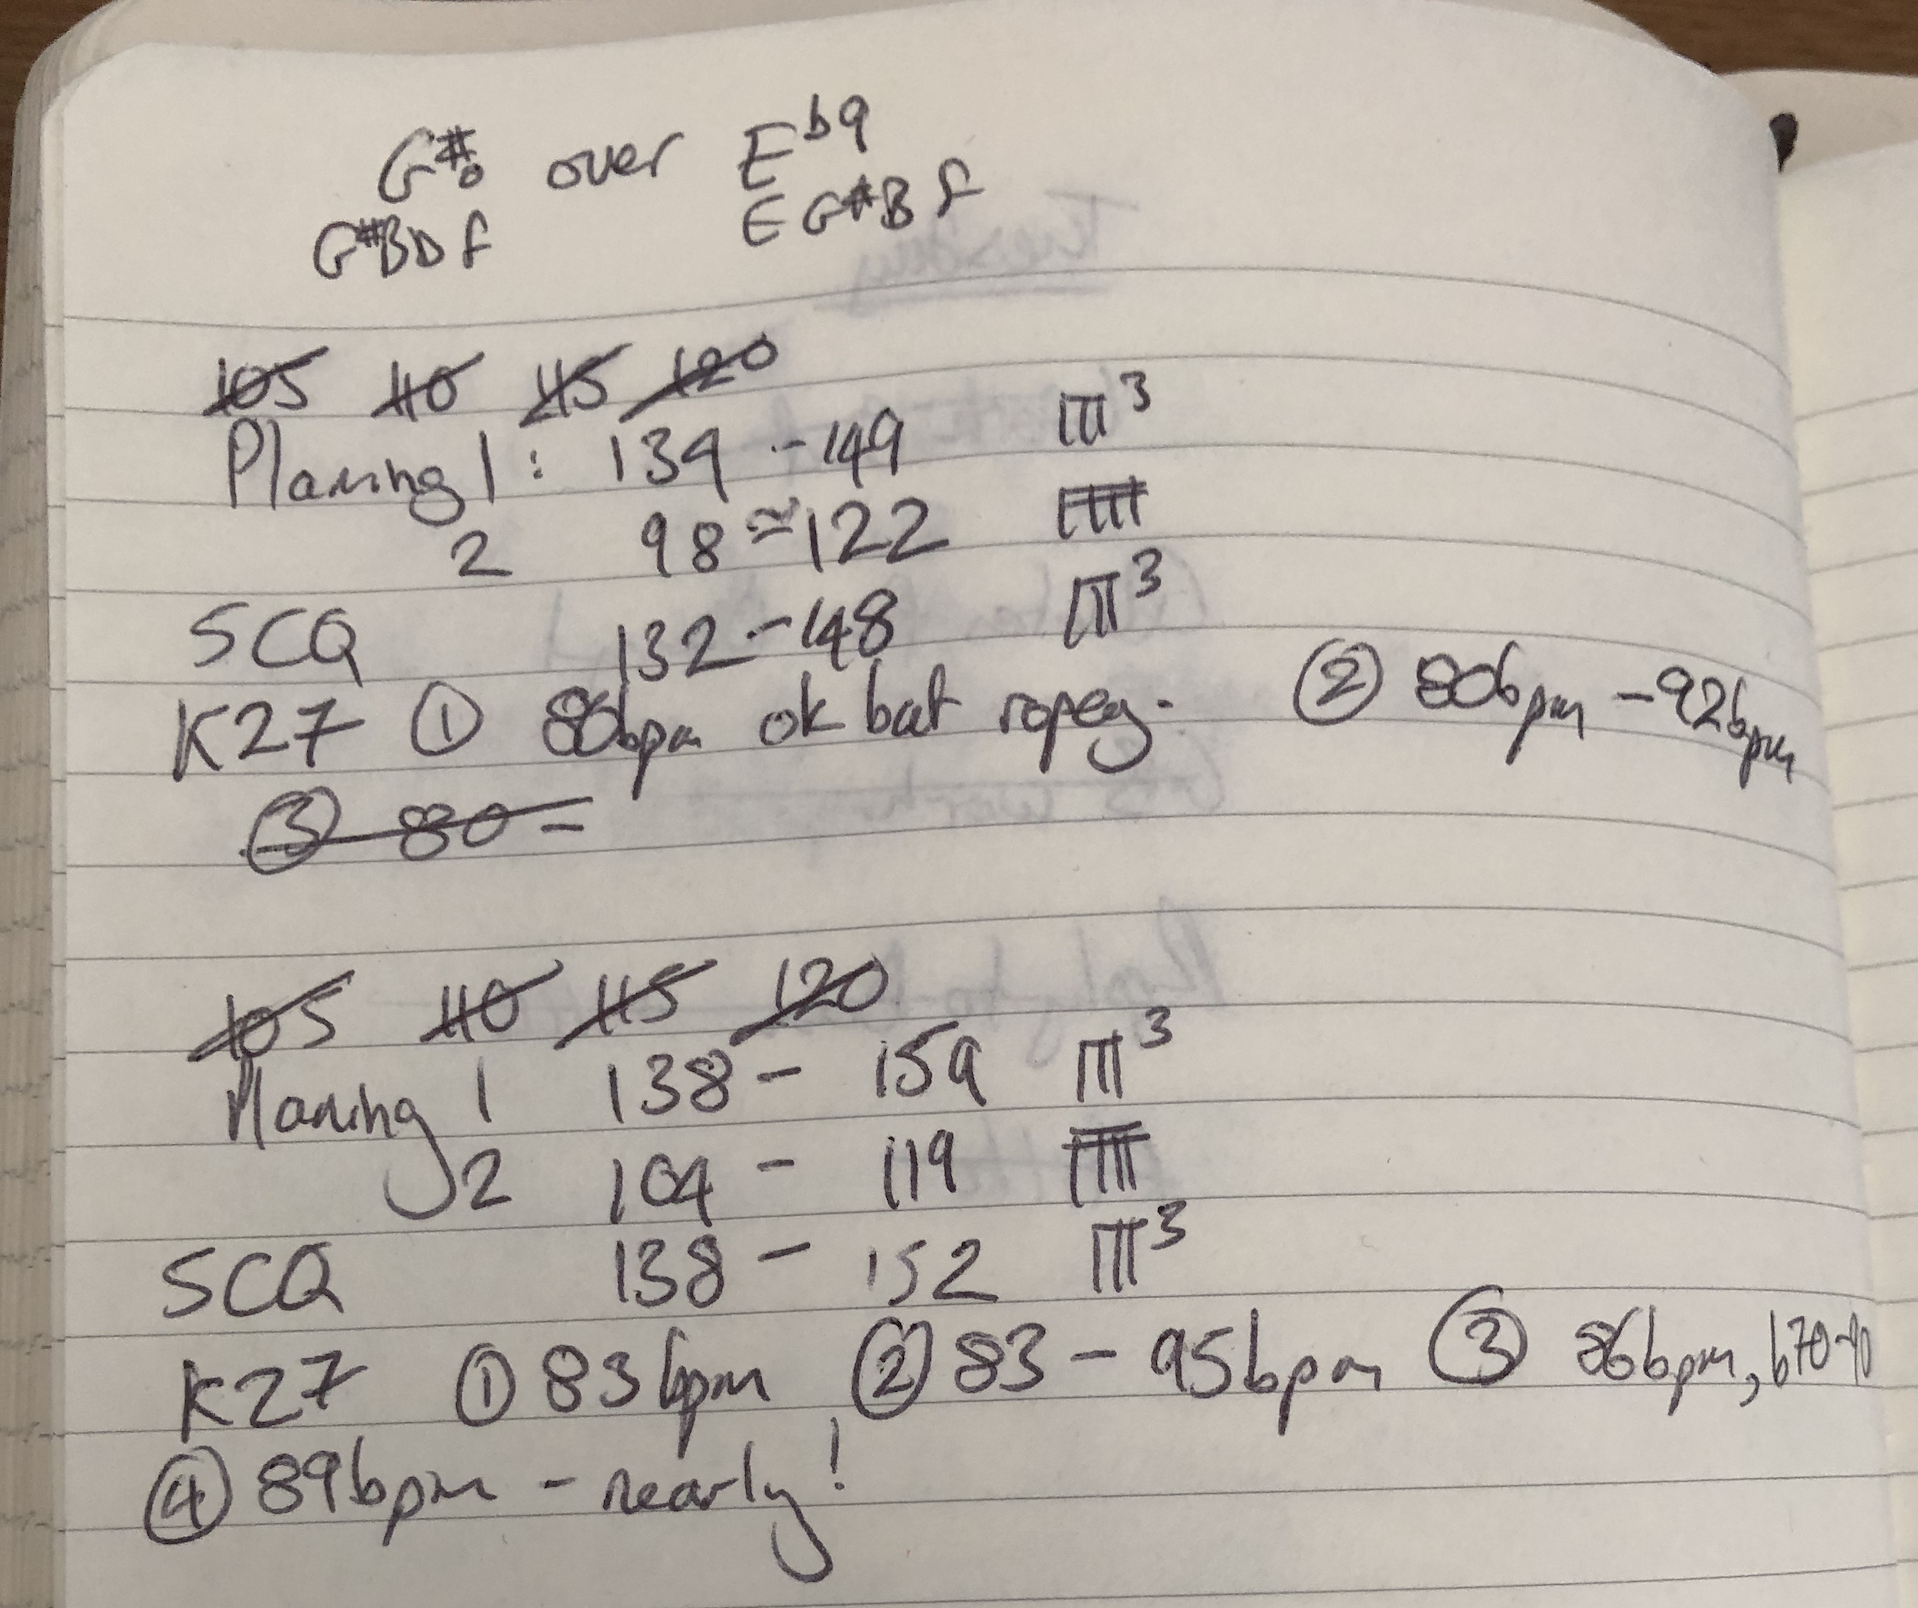 G#o over E♭9
G#BDF EG#BF
105 110 115 120
Planing 1: 139 - 149 3
2 98 ≈ 122
SCQ 132 - 148 3
K27 ① 80bpm ok but ropey. ② 80bpm - 92bpm
③ 80 -
105 110 115 120
Planing 1 138 - 159 3
2 104 - 119
SCQ 138 - 152 3
K27 ① 83bpm ② 83 - 95bpm ③ 86bpm,
④ 89bpm - nearly!